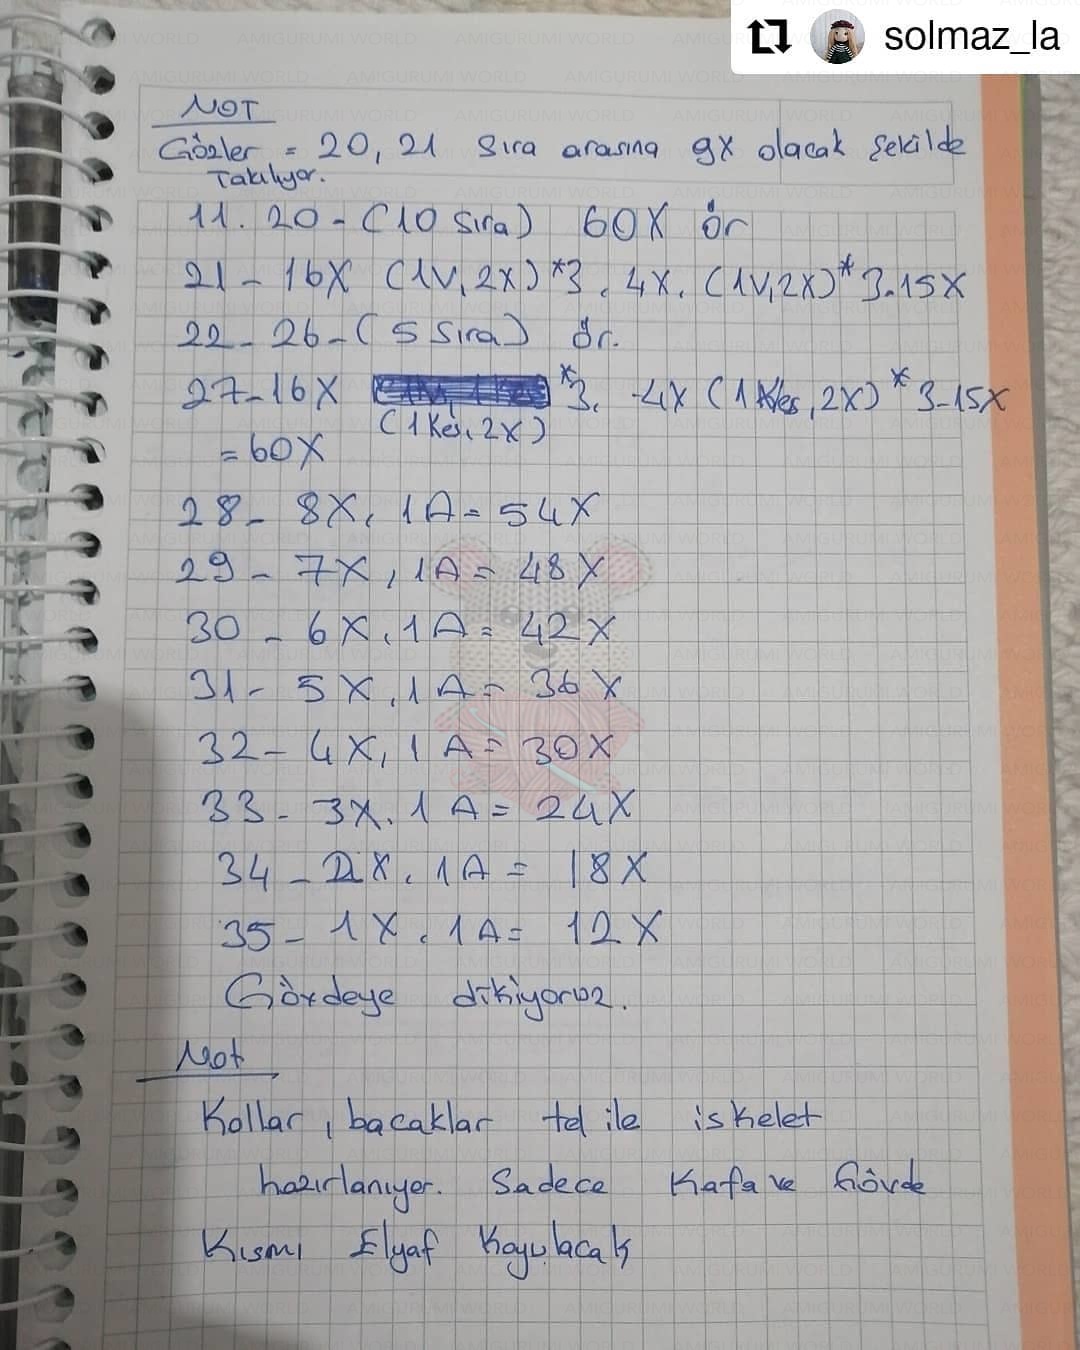 solmaz_la
NOT
Gözler = 20, 21 Sıra arasına 9X olacak Şekilde
Takılıyor.
11. 20 - (10 Sıra) 60X ör
21 - 16X (1V, 2X)*3. 4X. (1V,2X)*3-15X
22 - 26 - (5 Sıra) ör.
27-16X *3. -4X (1 Kes, 2X)*3-15X
(1 Kes, 2X)
= 60X
28 - 8X, 1A = 54X
29 - 7X, 1A = 48X
30 - 6X, 1A = 42X
31 - 5X, 1A = 36X
32 - 4X, 1A = 30X
33 - 3X. 1A = 24X
34 - 2X. 1A = 18X
35 - 1X. 1A = 12X
Gövdeye dikiyoruz.
Not
Kollar, bacaklar tel ile iskelet
hazırlanıyor. Sadece Kafa ve Gövde
Kısmı Elyaf Koyulacak
AMIGURUMI WORLD